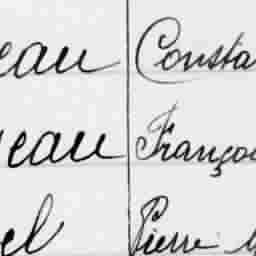 eau Consta
eau Françoi
el Pierre